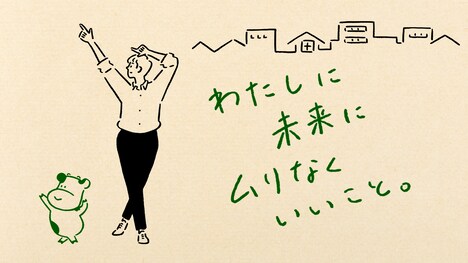 わたしに
未来に
ムリなく
いいこと。